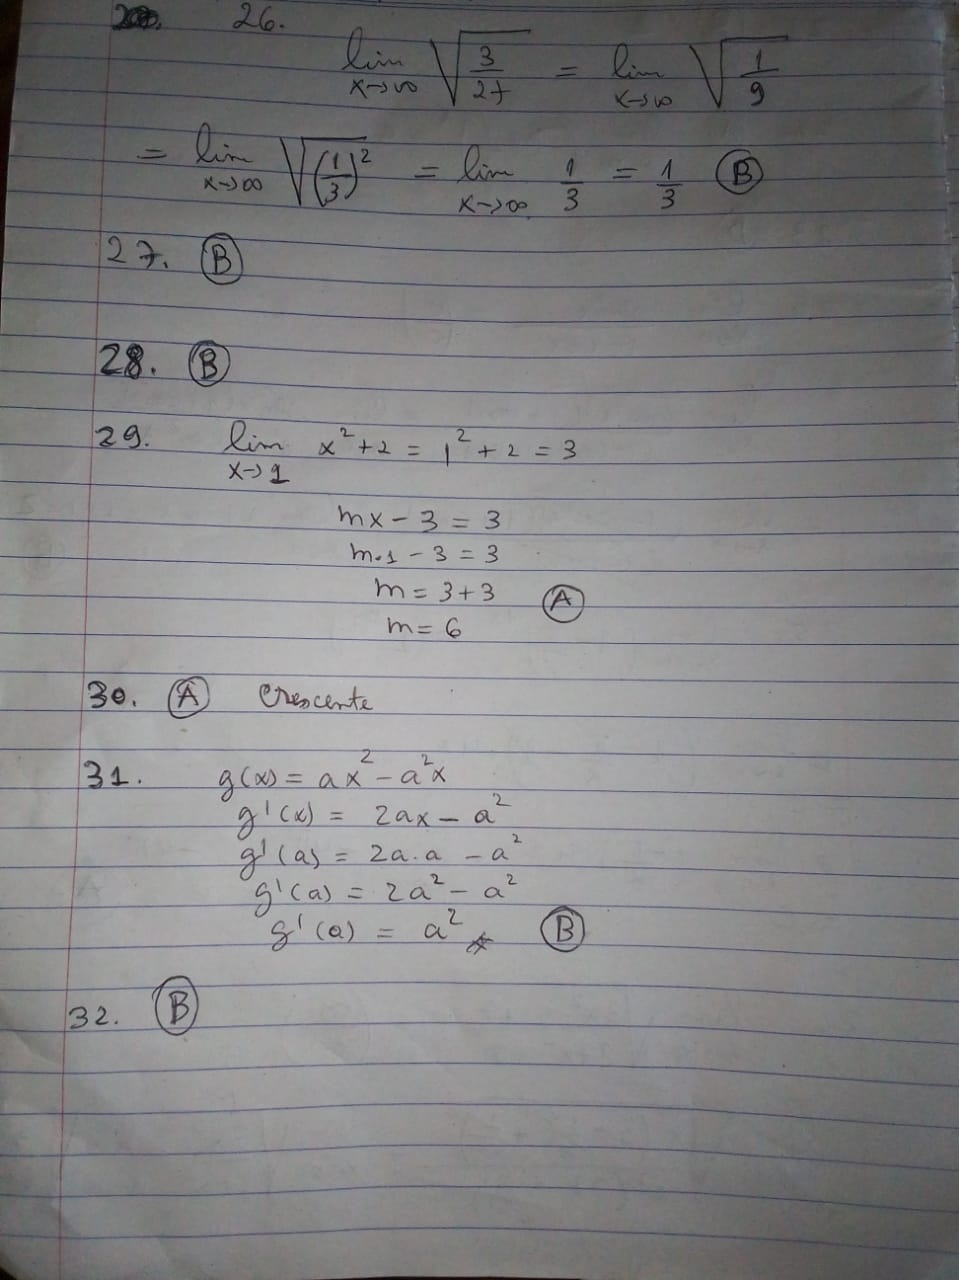 26.
lim x→∞ √(3/27) = lim x→∞ √(1/9)
= lim x→∞ √((1/3)²) = lim x→∞ 1/3 = 1/3 (B)
27. (B)
28. (B)
29. lim x→1 x² + 2 = 1² + 2 = 3
mx - 3 = 3
m.1 - 3 = 3
m = 3 + 3 (A)
m = 6
30. (A) Crescente
31. g(x) = ax² - a²x
g'(x) = 2ax - a²
g'(a) = 2a.a - a²
g'(a) = 2a² - a²
g'(a) = a² (B)
32. (B)